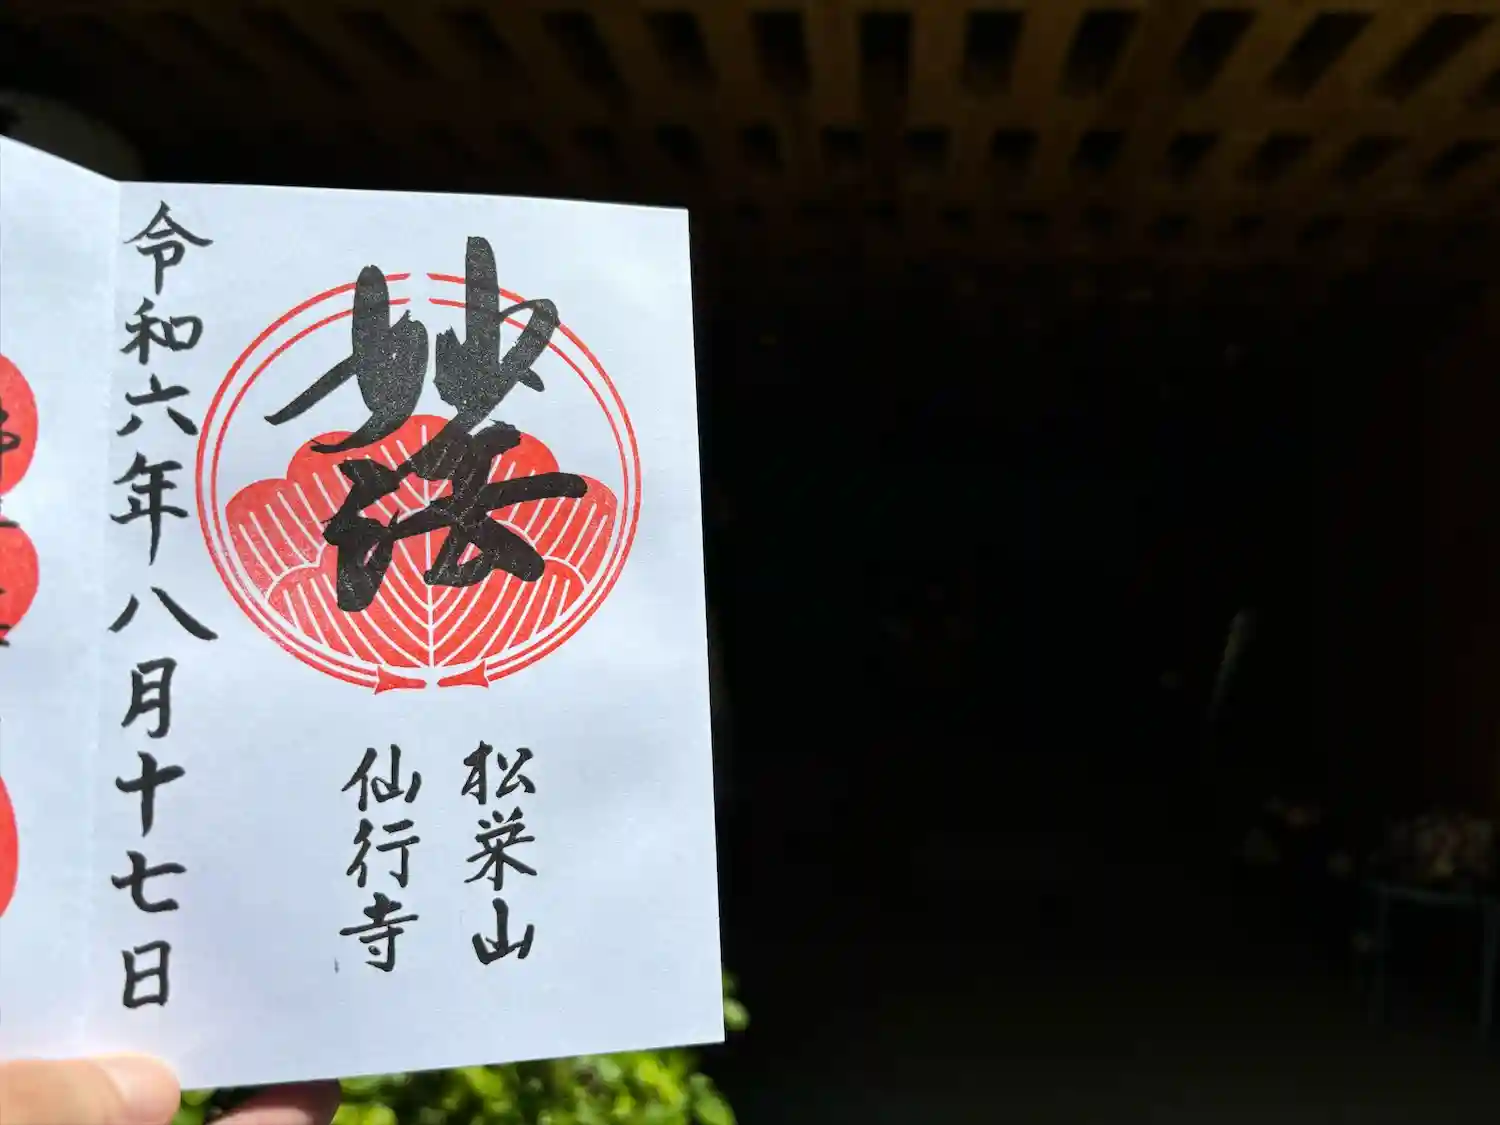 妙法
松栄山
仙行寺
令和六年八月十七日